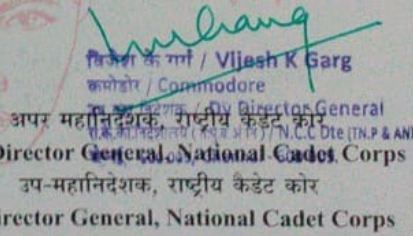 विजेश के गर्ग / Vijesh K Garg
कमोडोर / Commodore
उप महानिदेशक / Dy Director General
अपर महानिदेशक, राष्ट्रीय कैडेट कोर
/ N.C.C Dte (TN.P & AN
Director General, National Cadet Corps
उप-महानिदेशक, राष्ट्रीय कैडेट कोर
irector General, National Cadet Corps